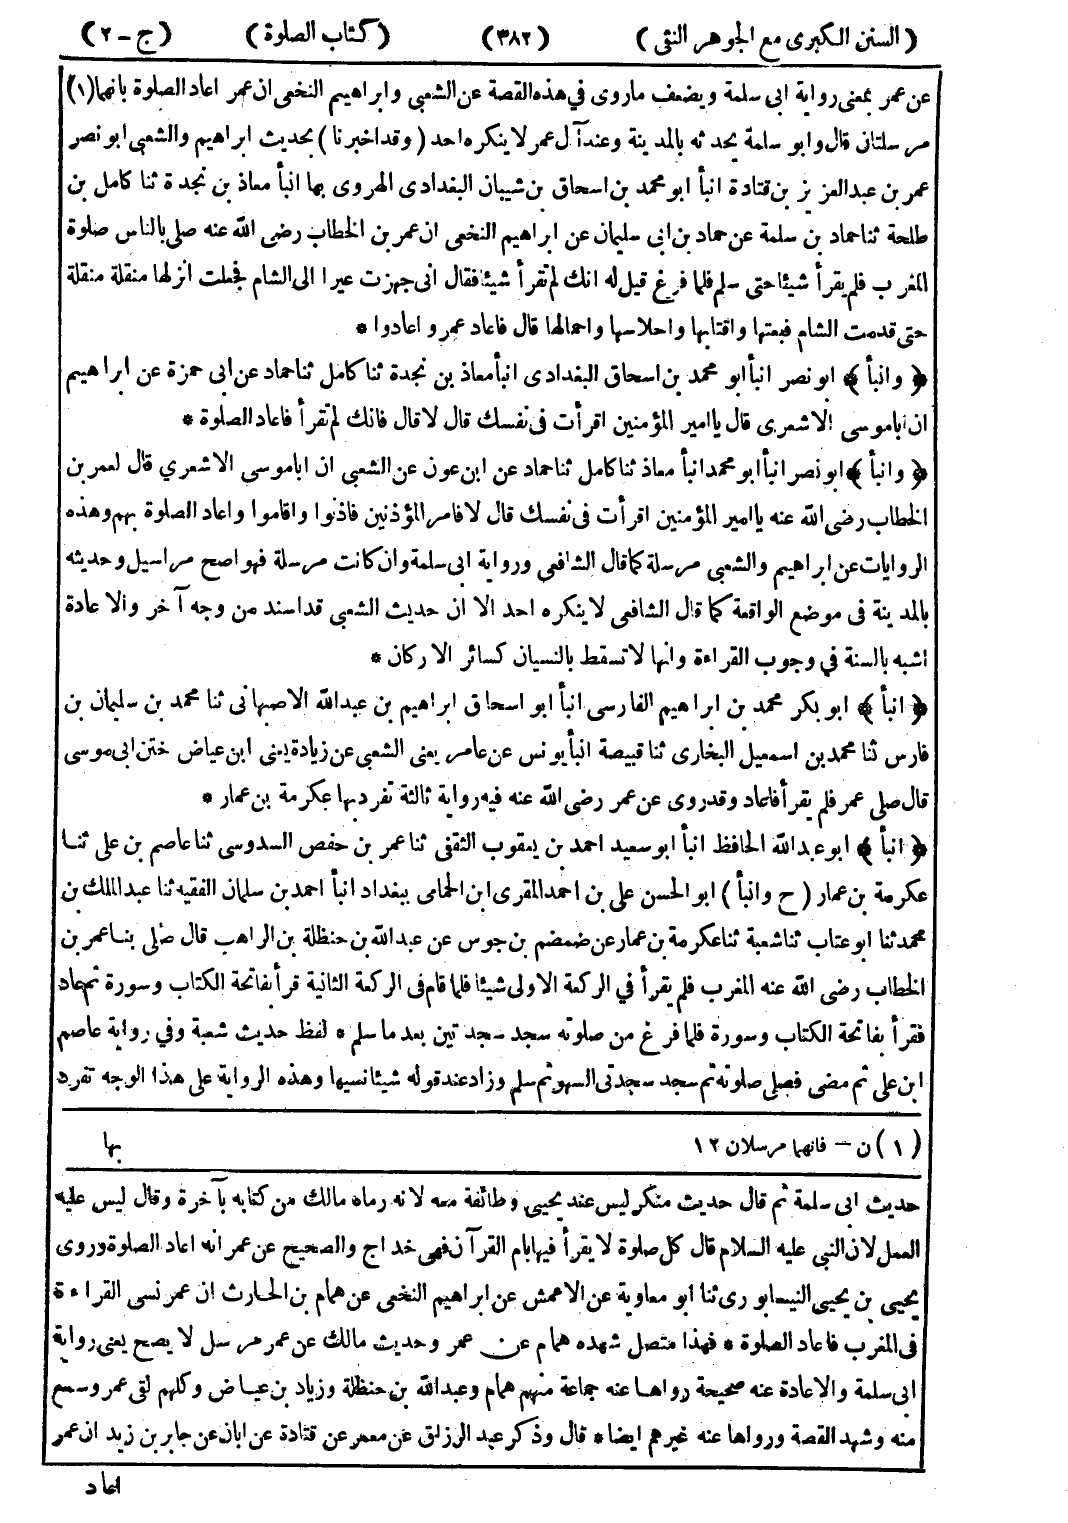 (السنن الكبرى مع الجوهر النقى) (٣٨٢) (كتاب الصلوة) (ج - ٢)
عن عمر بمعنى رواية ابى سلمة ويضعف ماروى في هذه القصة عن الشعبي وابراهيم النخعى ان عمر اعاد الصلوة بانهما (١)
مرسلتان قال وابو سلمة يحدثه بالمدينة وعند آل عمر لا ينكره احد (وقد اخبرنا) بحديث ابراهيم والشعبى ابو نصر
عمر بن عبد العزيز بن قتادة انبأ ابو محمد بن اسحاق بن شيبان البغدادى الهروى بها انبأ معاذ بن نجدة ثنا كامل بن
طلحة ثنا حماد بن سلمة عن حماد بن ابى سليمان عن ابراهيم النخعى ان عمر بن الخطاب رضى الله عنه صلى بالناس صلوة
المغرب فلم يقرأ شيئا حتى سلم فلما فرغ قيل له انك لم تقرأ شيئا فقال انى جهزت عيرا الى الشام فجعلت انزلها منقلة منقلة
حتى قدمت الشام فبعتها واقتابها واحلاسها واحمالها قال فاعاد عمر واعادوا *
﴿ وانبأ ﴾ ابو نصر انبأ ابو محمد بن اسحاق البغدادى انبأ معاذ بن نجدة ثنا كامل ثنا حماد عن ابى حمزة عن ابراهيم
ان ابا موسى الاشعرى قال يا امير المؤمنين اقرأت فى نفسك قال لا قال فانك لم تقرأ فاعاد الصلوة *
﴿ وانبأ ﴾ ابو نصر انبأ ابو محمد انبأ معاذ ثنا كامل ثنا حماد عن ابن عون عن الشعبي ان ابا موسى الاشعري قال لعمر بن
الخطاب رضى الله عنه يا امير المؤمنين اقرأت فى نفسك قال لا فامر المؤذنين فاذنوا واقاموا واعاد الصلوة بهم وهذه
الروايات عن ابراهيم والشعبى مرسلة كما قال الشافعى ورواية ابى سلمة وان كانت مرسلة فهو اصح مراسيل وحديثه
بالمدينة فى موضع الواقعة كما قال الشافعى لا ينكره احد الا ان حديث الشعبي قد اسند من وجه آخر والاعادة
اشبه بالسنة في وجوب القراءة وانها لا تسقط بالنسيان كسائر الاركان *
﴿ انبأ ﴾ ابو بكر محمد بن ابراهيم الفارسى انبأ ابو اسحاق ابراهيم بن عبدالله الاصبهانى ثنا محمد بن سليمان بن
فارس ثنا محمد بن اسمعيل البخارى ثنا قبيصة انبأ يونس عن عامر يعنى الشعبي عن زيادة يعنى ابن عياض ختن ابى موسى
قال صلى عمر فلم يقرأ فاعاد وقد روى عن عمر رضى الله عنه فيه رواية ثالثة تفرد بها عكرمة بن عمار *
﴿ انبأ ﴾ ابو عبد الله الحافظ انبأ ابو سعيد احمد بن يعقوب الثقفى ثنا عمر بن حفص السدوسى ثنا عاصم بن على ثنا
عكرمة بن عمار (ح وانبأ) ابو الحسن على بن احمد المقرى ابن الحمامى ببغداد انبأ احمد بن سلمان الفقيه ثنا عبد الملك بن
محمد ثنا ابو عتاب ثنا شعبة ثنا عكرمة بن عمار عن ضمضم بن جوس عن عبد الله بن حنظلة بن الراهب قال صلى بنا عمر بن
الخطاب رضى الله عنه المغرب فلم يقرأ في الركعة الاولى شيئا فلما قام فى الركعة الثانية قرأ بفاتحة الكتاب وسورة ثم عاد
فقرأ بفاتحة الكتاب وسورة فلما فرغ من صلوته سجد سجدتين بعد ما سلم * لفظ حديث شعبة وفي رواية عاصم
ابن على ثم مضى فصلى صلوته ثم سجد سجدتى السهو ثم سلم وزاد عند قوله شيئا نسيها وهذه الرواية على هذا الوجه تفرد
(١) ن - فانهما مرسلان ١٢
بها
حديث ابى سلمة ثم قال حديث منكر ليس عند يحيى وطائفة معه لانه رماه مالك من كتابه بآخرة وقال ليس عليه
العمل لان النبى عليه السلام قال كل صلوة لا يقرأ فيها بام القرآن فهى خداج والصحيح عن عمر انه اعاد الصلوة وروى
يحيى بن يحيى النيسابورى ثنا ابو معاوية عن الاعمش عن ابراهيم النخعى عن همام بن الحارث ان عمر نسى القراءة
فى المغرب فاعاد الصلوة * فهذا متصل شهده همام عن عمر وحديث مالك عن عمر مرسل لا يصح يعنى رواية
ابى سلمة والاعادة عنه صحيحة رواها عنه جماعة منهم همام وعبدالله بن حنظلة وزياد بن عياض وكلهم لقى عمر وسمع
منه وشهد القصة ورواها عنه غيرهم ايضا * قال وذكر عبد الرزاق عن معمر عن قتادة عن ابان عن جابر بن زيد ان عمر
اعاد